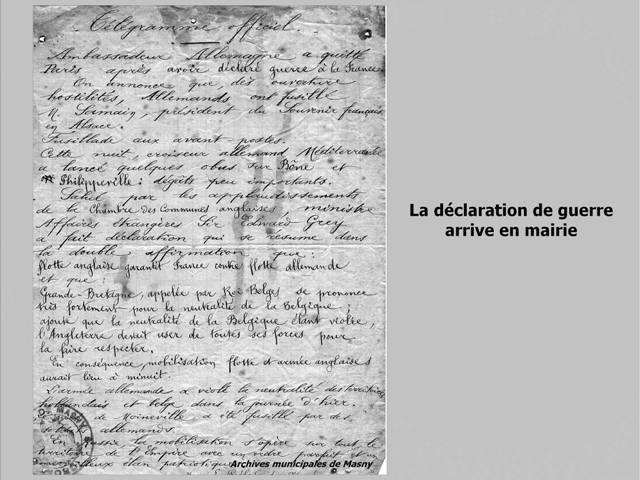 Télégramme officiel.
Ambassadeur Allemagne a quitté
Paris après avoir déclaré guerre à la France.
On annonce que, dès ouverture
hostilités, Allemands ont fusillé
M. Samain, président du Souvenir français
en Alsace.
Fusillade aux avant-postes.
Cette nuit, croiseur allemand Méditerranée
a lancé quelques obus sur Bône et
Philippeville : dégâts peu importants.
Salué par les applaudissements
de la Chambre des Communes anglaises, ministre
Affaires étrangères Sir Edward Grey
a fait déclaration qui se résume dans
la double affirmation que :
flotte anglaise garantit France contre flotte allemande
et que :
Grande-Bretagne, appelée par Roi Belges se prononce
très fortement pour la neutralité de la Belgique ;
ajoute que la neutralité de la Belgique étant violée,
l'Angleterre devait user de toutes ses forces pour
la faire respecter.
En conséquence, mobilisation flotte et armée anglaises
aurait lieu à minuit.
L'armée allemande a violé la neutralité des territoires
hollandais et belge dans la journée d'hier.
de Moineville a été fusillé par des
allemands.
En Russie la mobilisation s'opère sur tout le
territoire de l'Empire avec un ordre parfait et un
élan patriotique
MASNY
Archives municipales de Masny
La déclaration de guerre
arrive en mairie